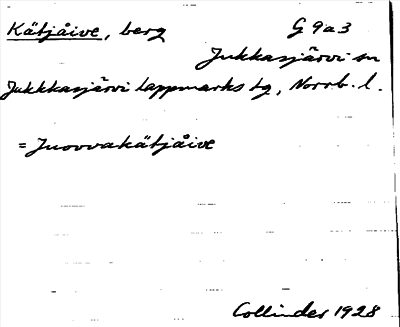 Kätjåive, berg G 9 a 3
Jukkasjärvi sn
Jukkkasjärvi lappmarks tg, Norrb. l.
= Juovvakätjåive
Collinder 1928